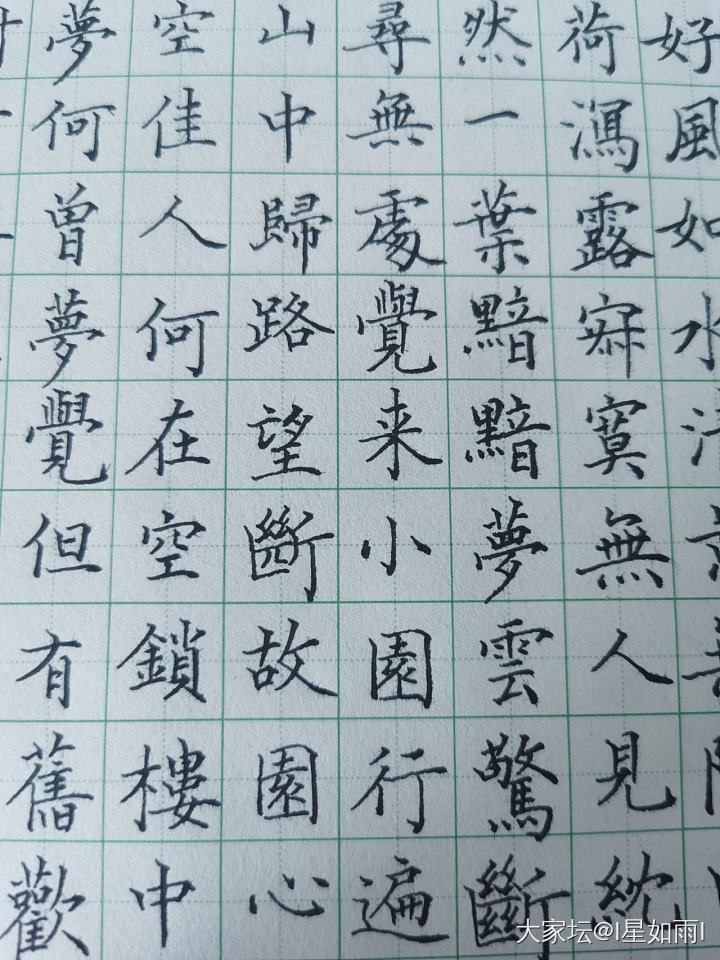 好風如水
荷潟露寂寞無人見紞
然一葉黯黯夢雲驚斷
尋無處覺来小園行遍
山中歸路望斷故園心
空佳人何在空鎖樓中
夢何曾夢覺但有舊歡
大家坛@I星如雨I